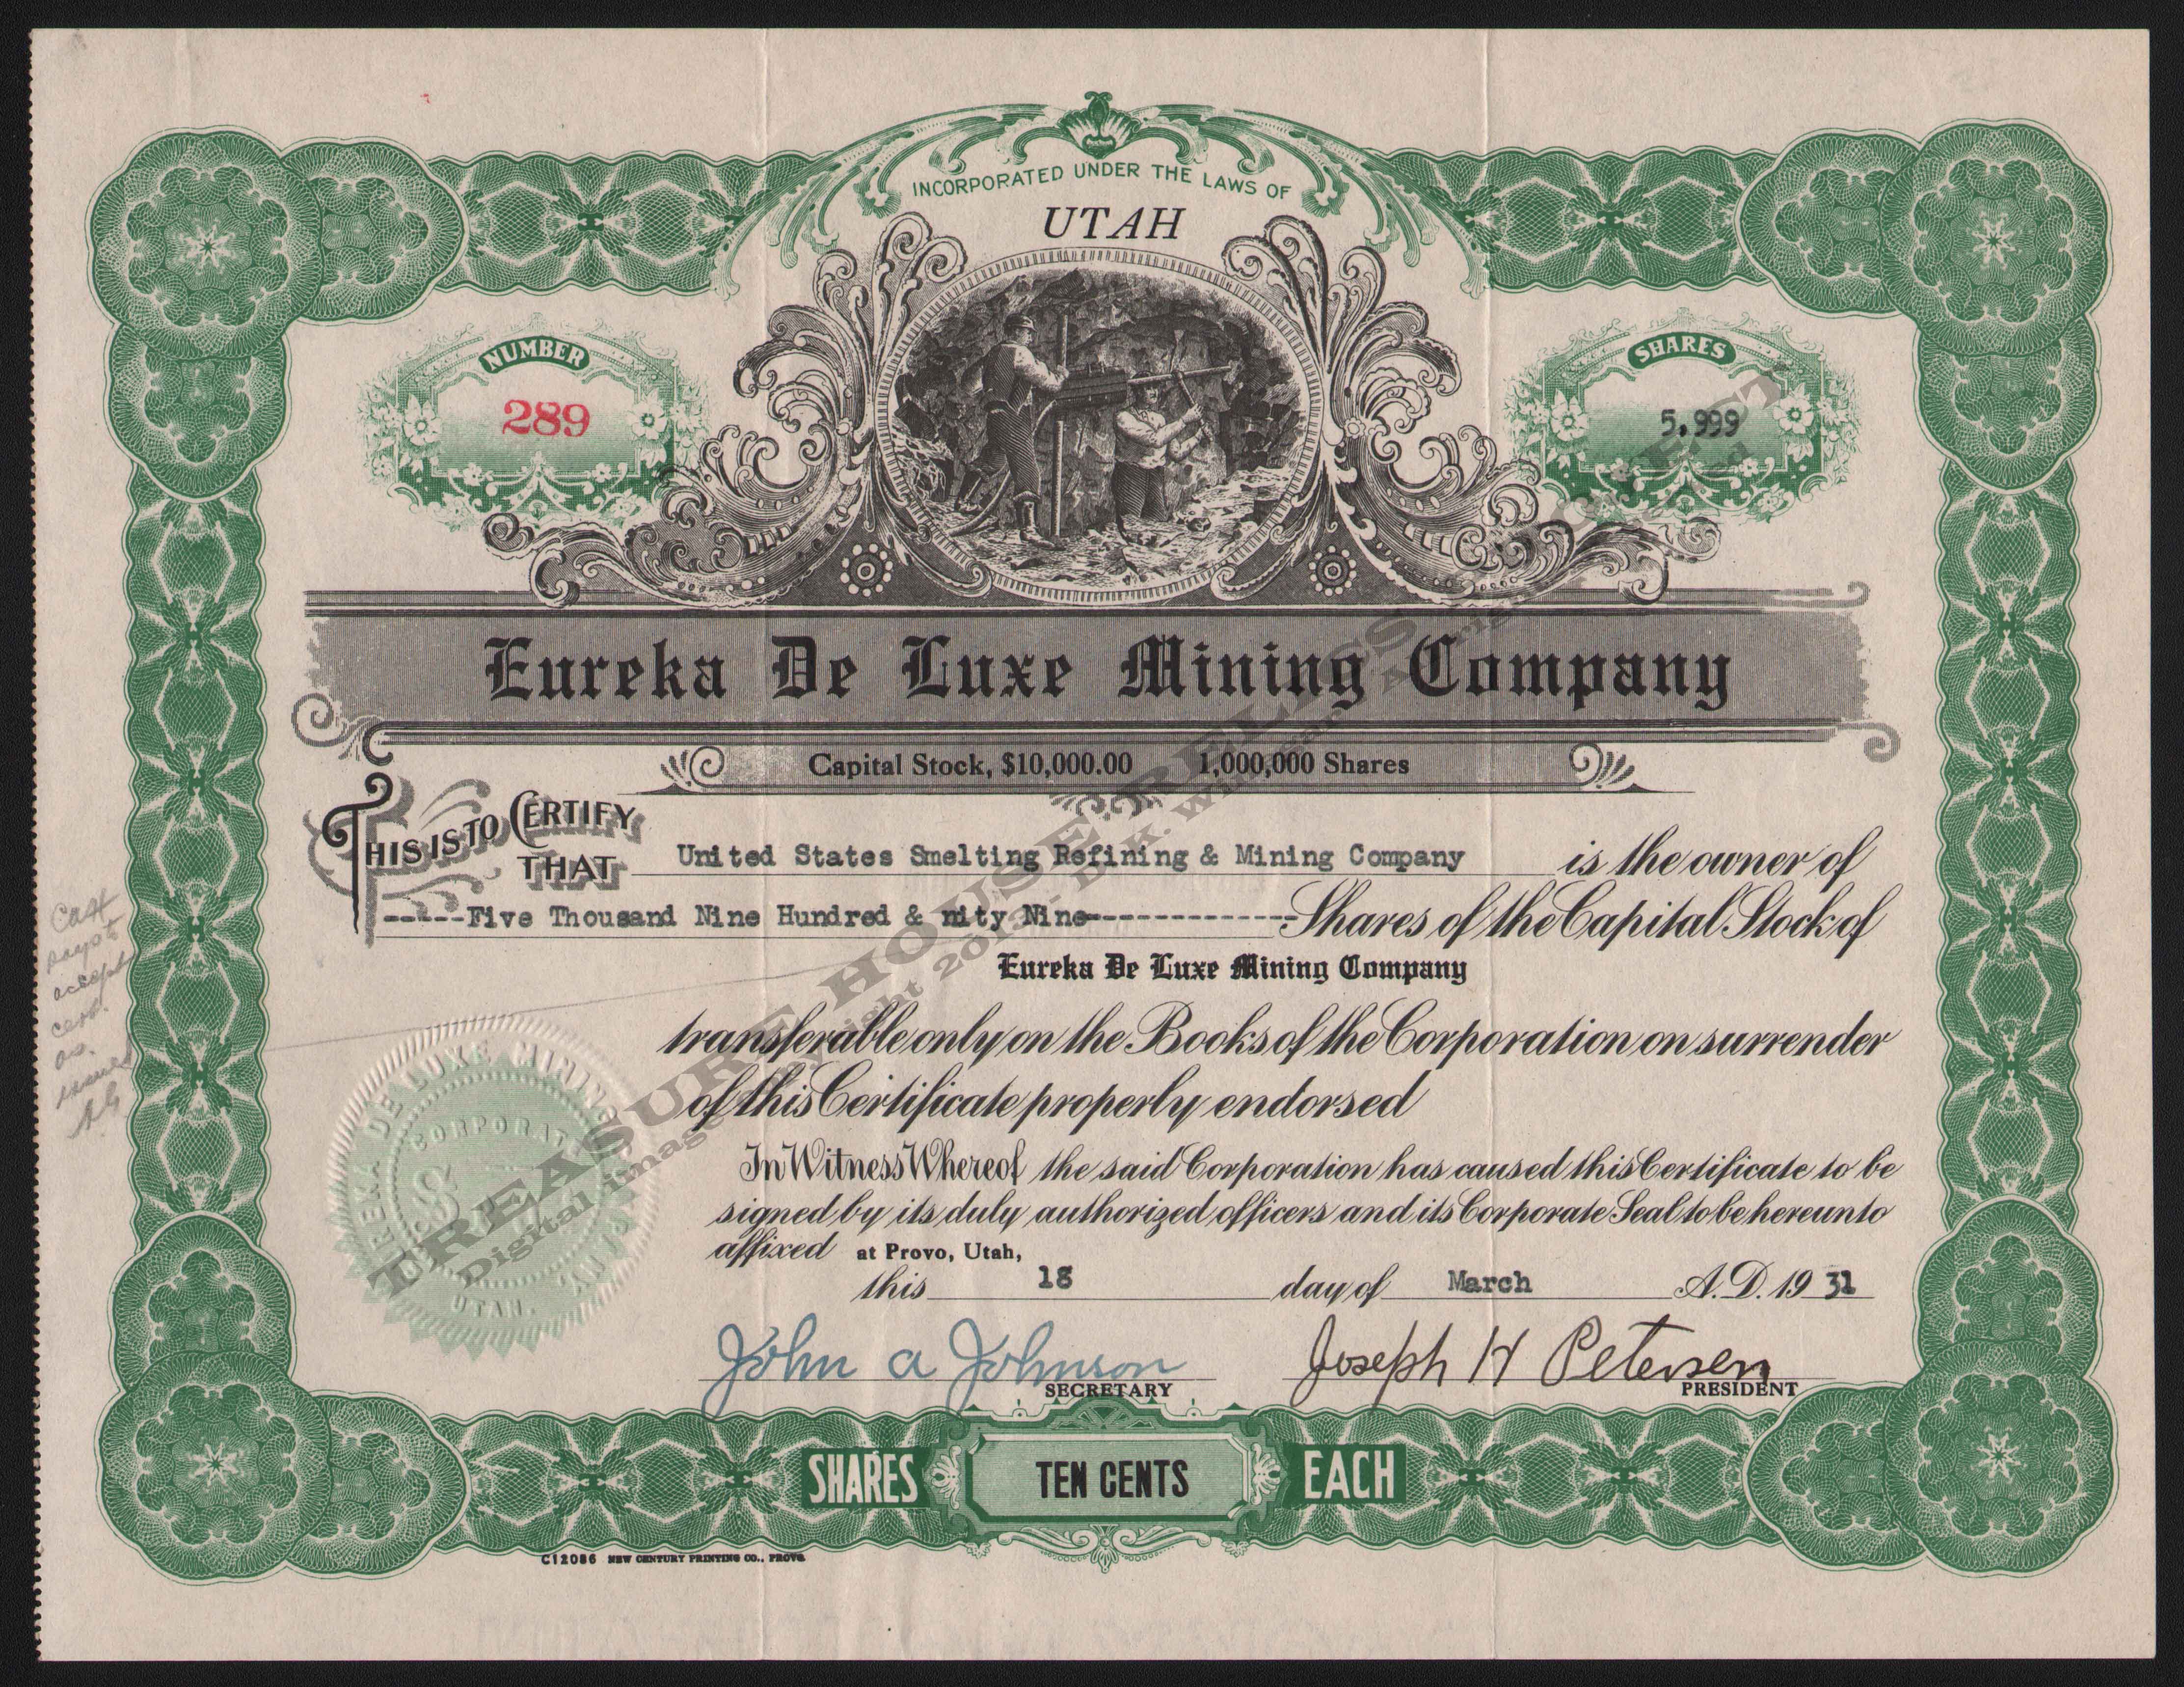 INCORPORATED UNDER THE LAWS OF
UTAH
NUMBER
289
SHARES
5,999
Eureka De Luxe Mining Company
Capital Stock, $10,000.00 1,000,000 Shares
THIS IS TO CERTIFY
THAT United States Smelting Refining & Mining Company is the owner of
-----Five Thousand Nine Hundred & nity Nine-------------Shares of the Capital Stock of
Eureka De Luxe Mining Company
transferable only on the Books of the Corporation on surrender
of this Certificate properly endorsed
In Witness Whereof the said Corporation has caused this Certificate to be
signed by its duly authorized officers and its Corporate Seal to be hereunto
affixed at Provo, Utah,
this 18 day of March A.D. 19 31
John A Johnson
SECRETARY
Joseph H Petersen
PRESIDENT
SHARES TEN CENTS EACH
C12086 NEW CENTURY PRINTING CO., PROVO
EUREKA DE LUXE MINING
CORPORATE
UTAH.
cert.
TREASURE HOUSE RELICS
Digital image